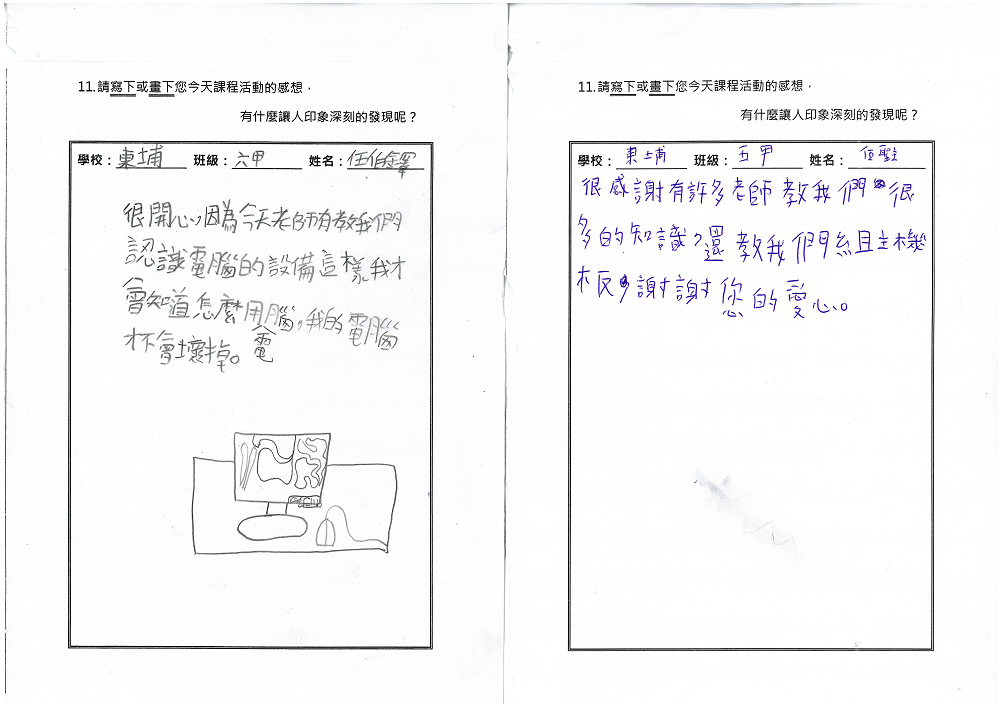 11.請寫下或畫下您今天課程活動的感想，
有什麼讓人印象深刻的發現呢？
學校：東埔 班級：六甲 姓名：任伯鐸
很開心，因為今天老師有教我們
認識電腦的設備這樣，我才
會知道怎麼用腦，我的電腦
電
才不會壞掉。
11.請寫下或畫下您今天課程活動的感想，
有什麼讓人印象深刻的發現呢？
學校：東埔 班級：五甲 姓名：
很感謝有許多老師教我們很
多的知識，還教我們組主機
板，謝謝您的愛心。